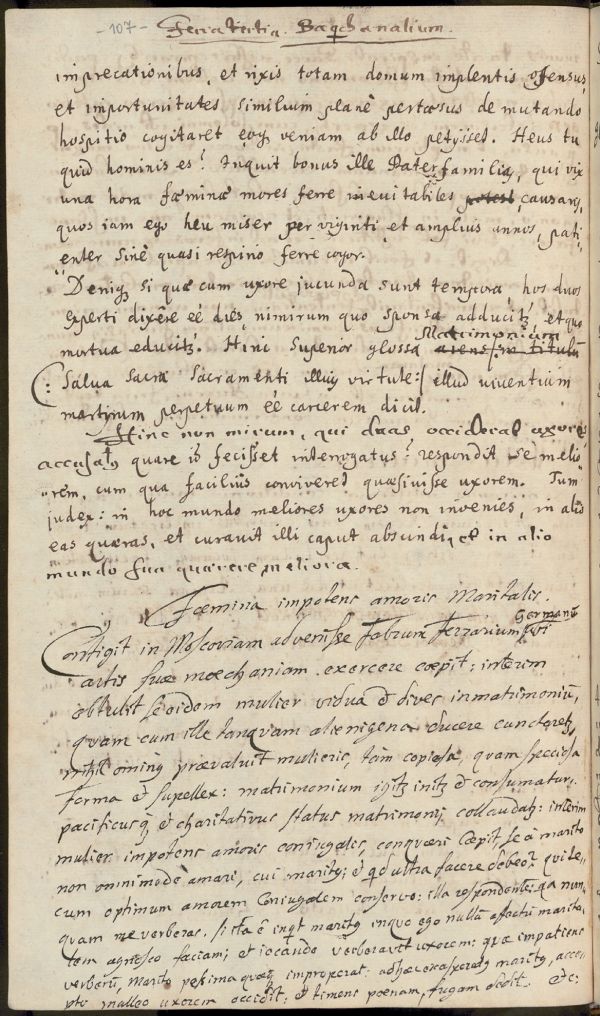 - 107 - Feria tertia. Bacchanalium.
imprecationibus, et rixis totam domum implentis offensus,
et importunitates similium planè pertæsus de mutando
hospitio cogitaret eoq; veniam ab illo petijsset. Heus tu
quid hominis es? Inquit bonus ille Paterfamilias, qui vix
una hora fæminæ mores ferre inevitabiles potest causaris,
quos iam ego heu miser per viginti et amplius annos, pati,,
enter sinè quasi respirio ferre cogor.
Deniq; si quæ cum uxore jucunda sunt tempora hos duos
experti dixêre eē dies, nimirum quo sponsa adducitz, et quo
mortua educitz. Hinc superior glossa Matrimonium
titulū
(: salva sacra Sacramenti illius virtute :/ illud viventium
martyrum perpetuum eē carcerem dicit.
Hinc non mirum, qui duas occiderat uxores
accusatq quare id fecisset interrogatus? respondit se melio
rem, cum qua faciliùs conviveret quæsivisse uxorem. Tum
judex: in hoc mundo meliores uxores non invenies, in alio
eas quæras, et curavit illi caput abscindi, et in alio
mundo sua quærere meliora.
Fæmina impotens amoris Maritalis.
Contigit in Moscoviam advenisse Fabrum Ferrarium Germanū qui
artis suæ moechaniam exercere cœpit: interim
obtulit se eidem mulier vidua & dives in matrimoniū,
quam cum ille tanquam alienigena ducere cunctaretz,
nihil ominq prævaluit mulieris, tam copiosa, quam speciosa
forma & supellex: matrimonium igitz initz & consumatur.
pacificusq; & charitativus status matrimonij collaudatz: interim
mulier impotens amoris conjugalis, conqueri cœpit, se à marito
non omnimodè amari, cui maritq: & qd ultra facere debeo? qui te,,
cum optimum amorem conjugalem conservo: illa respondente: qa nun,,
quam me verberas. Si ita ē inqt maritq inquo ego nullū affectū marita,,
lem agnosco faciam; et iocando verberavit uxorem: quæ impatiens
verberū, Marito pessima quæq; improperat: adhæc exasperatq maritq, acce,,
pto malleo uxorem occidit: & timens poenam, fugam dedit. &c: